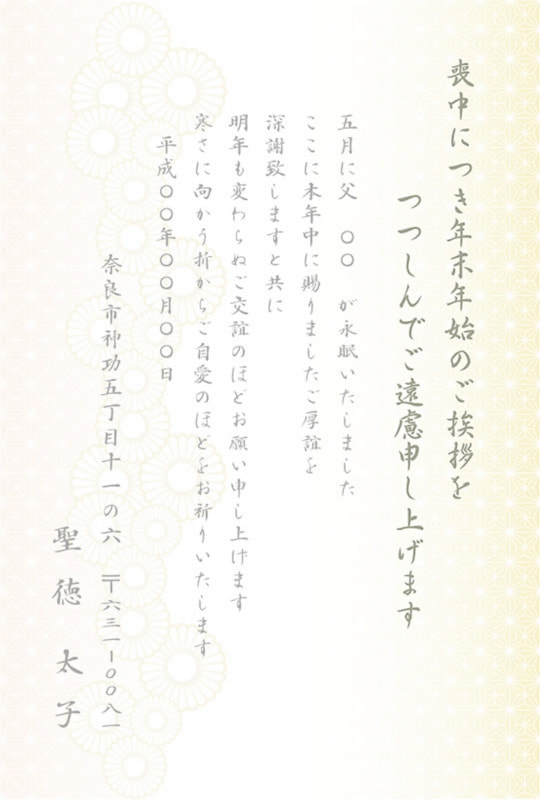 喪中につき年末年始のご挨拶を
つつしんでご遠慮申し上げます
五月に父 〇〇 が永眠いたしました
ここに本年中に賜りましたご厚誼を
深謝致しますと共に
明年も変わらぬご交誼のほどお願い申し上げます
寒さに向かう折からご自愛のほどをお祈りいたします
平成〇〇年〇〇月〇〇日
奈良市神功五丁目十一の六 〒六三一-〇〇八一
聖徳太子